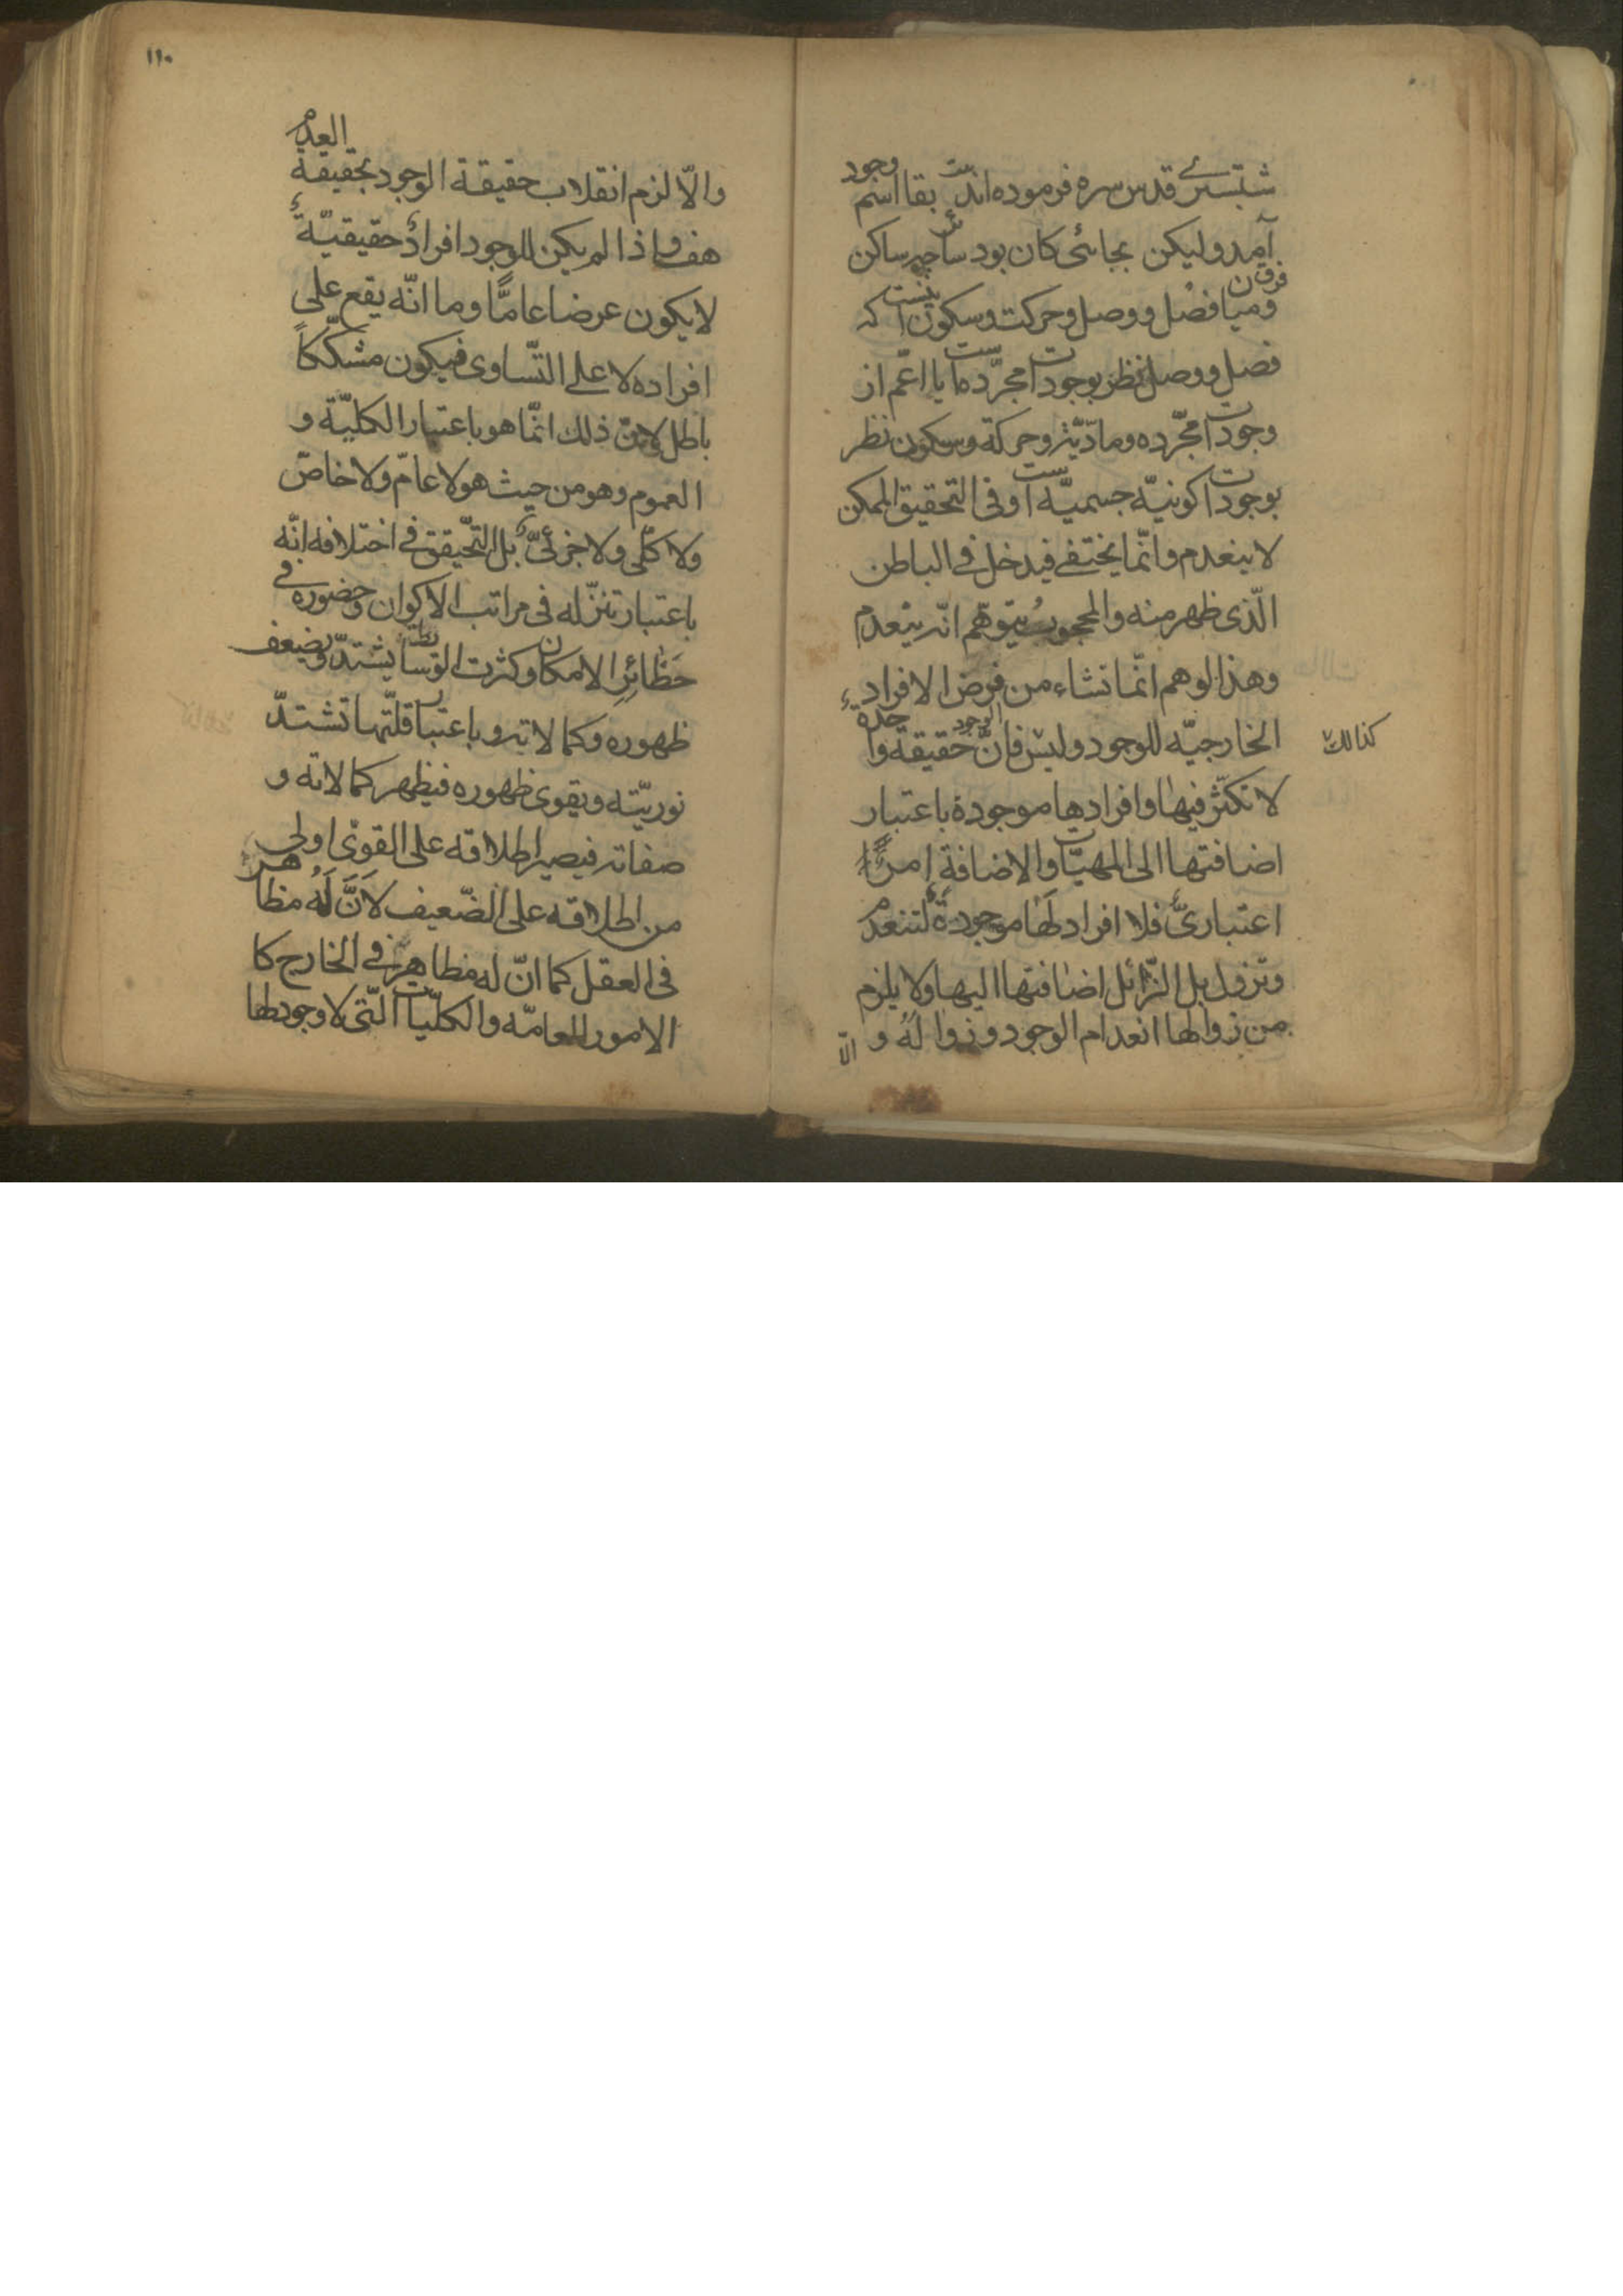 شبستری قدس سره فرموده‌اند بیت بقا اسم وجود
آمد ولیکن بجائی کان بود سائر چو ساکن
ومیان فصل و وصل و حرکت و سکون فرق اینست که
فصل و وصل نظر بوجودات مجرّده است یا اعمّ از
وجودات مجّرده ومادّیّه وحرکة وسکون نظر
بوجودات کونیّه جسمیّه است وفی التحقیق الممکن
لا ینعدم وانّما یختفی فیدخل فی الباطن
الّذی ظهر منه والمحجوب یتوهّم انّه ینعدم
وهذا الوهم انّما تشاء من فرض الافراد
الخارجیّه للوجود ولیس کذالک فانّ الوجود حقیقة واحدة
لا تکثّر فیها وافرادها موجودة باعتبار
اضافتها الی المهیّات والاضافة امرٌ
اعتباریٌّ فلا افراد لها موجودةٌ لتنعدم
وتزول بل الزّائل اضافتها الیها ولا یلزم
من زوالها انعدام الوجود وزواله و
الّا
١١٠
والّا لزم انقلاب حقیقة الوجود بحقیقة العدم
هف واذا لم یکن للوجود افرادٌ حقیقیّةٌ
لا یکون عرضا عامًّا وما انّه یقع علی
افراده لا علی التّساوی فیکون مشکّکاً
باطل لانّ ذلك انّما هو باعتبار الکلیّة و
العموم وهو من حیث هو لا عامّ ولا خاصّ
ولا کلّی ولا جزئیّ بل التّحقیق فی اختلافه انّه
باعتبار تنزّله فی مراتب الاکوان وحضوره فی
حظائرِ الامکان وکثرت الوسائط یشتدّ ویضعف
ظهوره وکمالاته و باعتبار قلّتها تشتدّ
نوریّته ویقوی ظهوره فیظهر کمالاته و
صفاته فیصیر اطلاقه علی القوّی اولی
من اطلاقه علی الضّعیف لاَنَّ لَهُ مظاهر
فی العقل کما انّ له مظاهر فی الخارج کا
الامور العامّه والکلیّات الّتی لا وجود لها